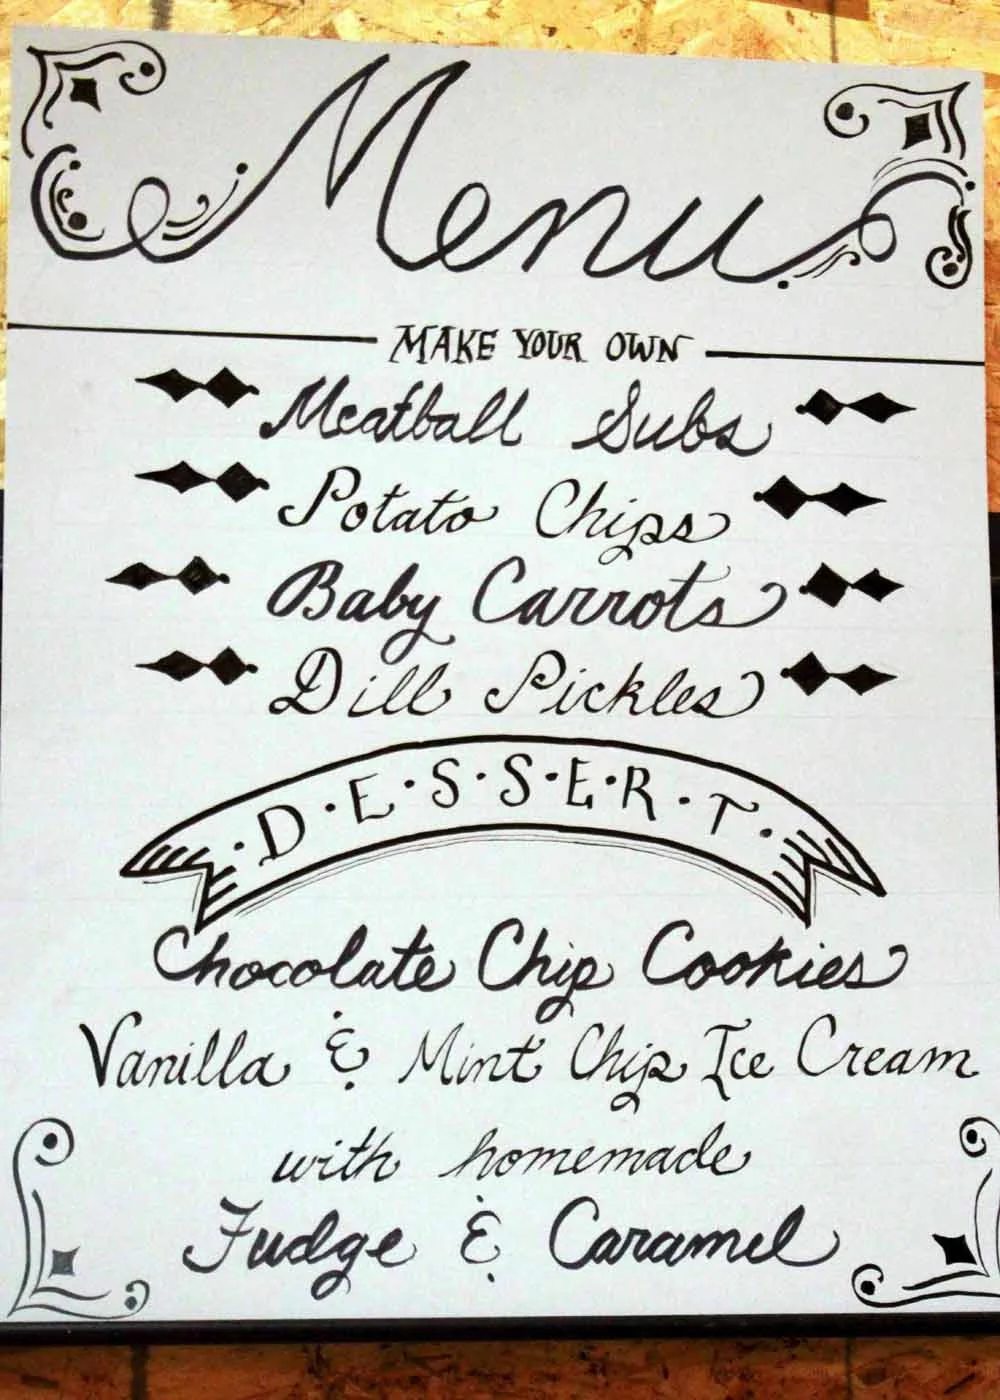 Menu
MAKE YOUR OWN
Meatball Subs
Potato Chips
Baby Carrots
Dill Pickles
·D·E·S·S·E·R·T·
Chocolate Chip Cookies
Vanilla & Mint Chip Ice Cream
with homemade
Fudge & Caramel